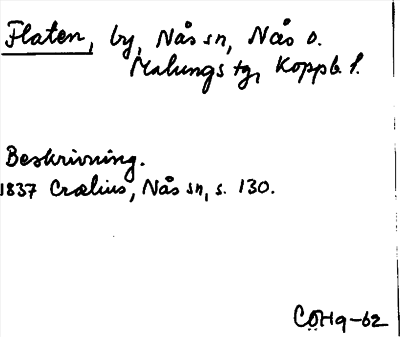 Flaten, by, Nås sn, Nås o.
Malungs tg, Koppb. l.
Beskrivning.
1837 Crælius, Nås sn, s. 130.
CÖHq-62